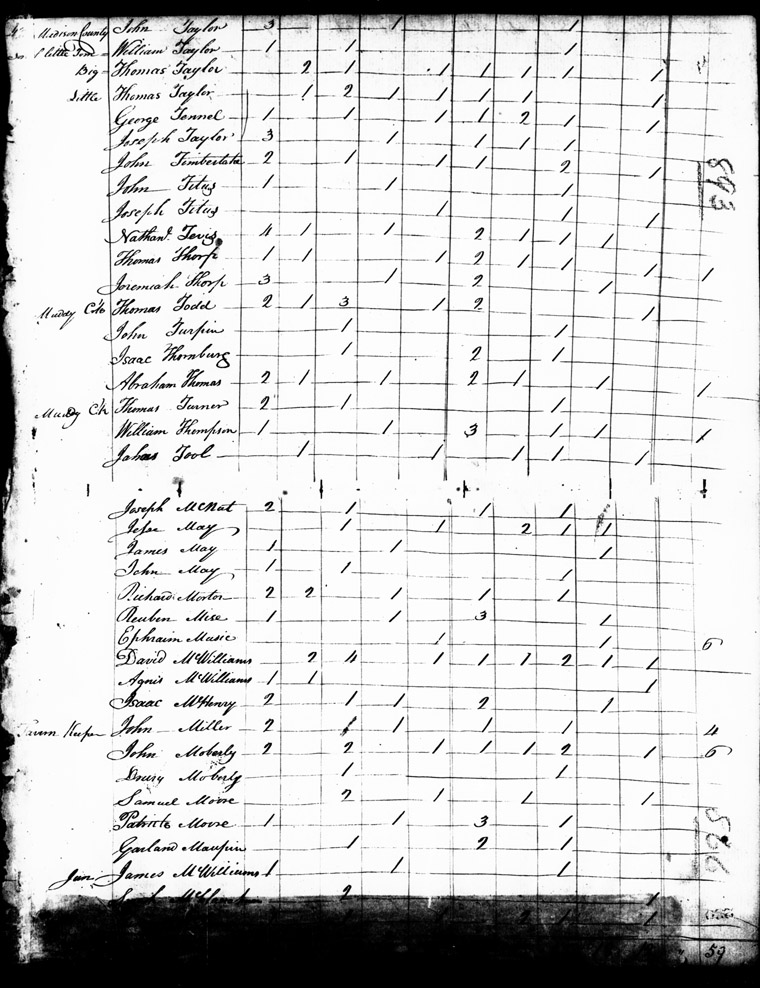 Madison County John Taylor 3 1 1
William Taylor 1 1 1
Big Thomas Taylor 2 1 1 1 1 1 1
Little Thomas Taylor 1 2 1 1 1 1 1
George Tennel 1 1 1 1 2 1 1
Joseph Taylor 3 1 1 1 1
John Timberlake 2 1 1 1 2 1
John Titus 1 1 1
Joseph Titus 1 1 1
Nathanl. Tevis 4 1 1 2 1 1 1
Thomas Thorp 1 1 1 2 1 1 1 1
Jeremiah Thorp 3 1 2 1
Muddy Ck Thomas Todd 2 1 3 1 2 1
John Turpin 1 1
Isaac Thornburg 1 2 1
Abraham Thomas 2 1 1 2 1 1 1
Muddy Ck Thomas Turner 2 1 1
William Thompson 1 1 3 1 1 1
Tool 1 1 1 1 1
893
Joseph McNut 2 1 1 1
Jesse May 1 1 2 1 1
James May 1 1 1
John May 1 1 1
Richard Morton 2 2 1 1 1
Reuben Mise 1 1 3 1
Ephraim Music 1 1 6
David McWilliams 2 4 1 1 1 2 1 1
Agnis McWilliams 1 1 1
Isaac McHenry 2 1 1 2 1
Tavern Keeper John Miller 2 1 1 1 1 4
John Moberly 2 2 1 1 1 2 1 6
Drury Moberly 1 1
Samuel Moore 2 1 1 1
Patrick Moore 1 1 3 1
Garland Maupin 1 2 1
Jun. James McWilliams 1 1 1
2 1
2 1 1
566
59